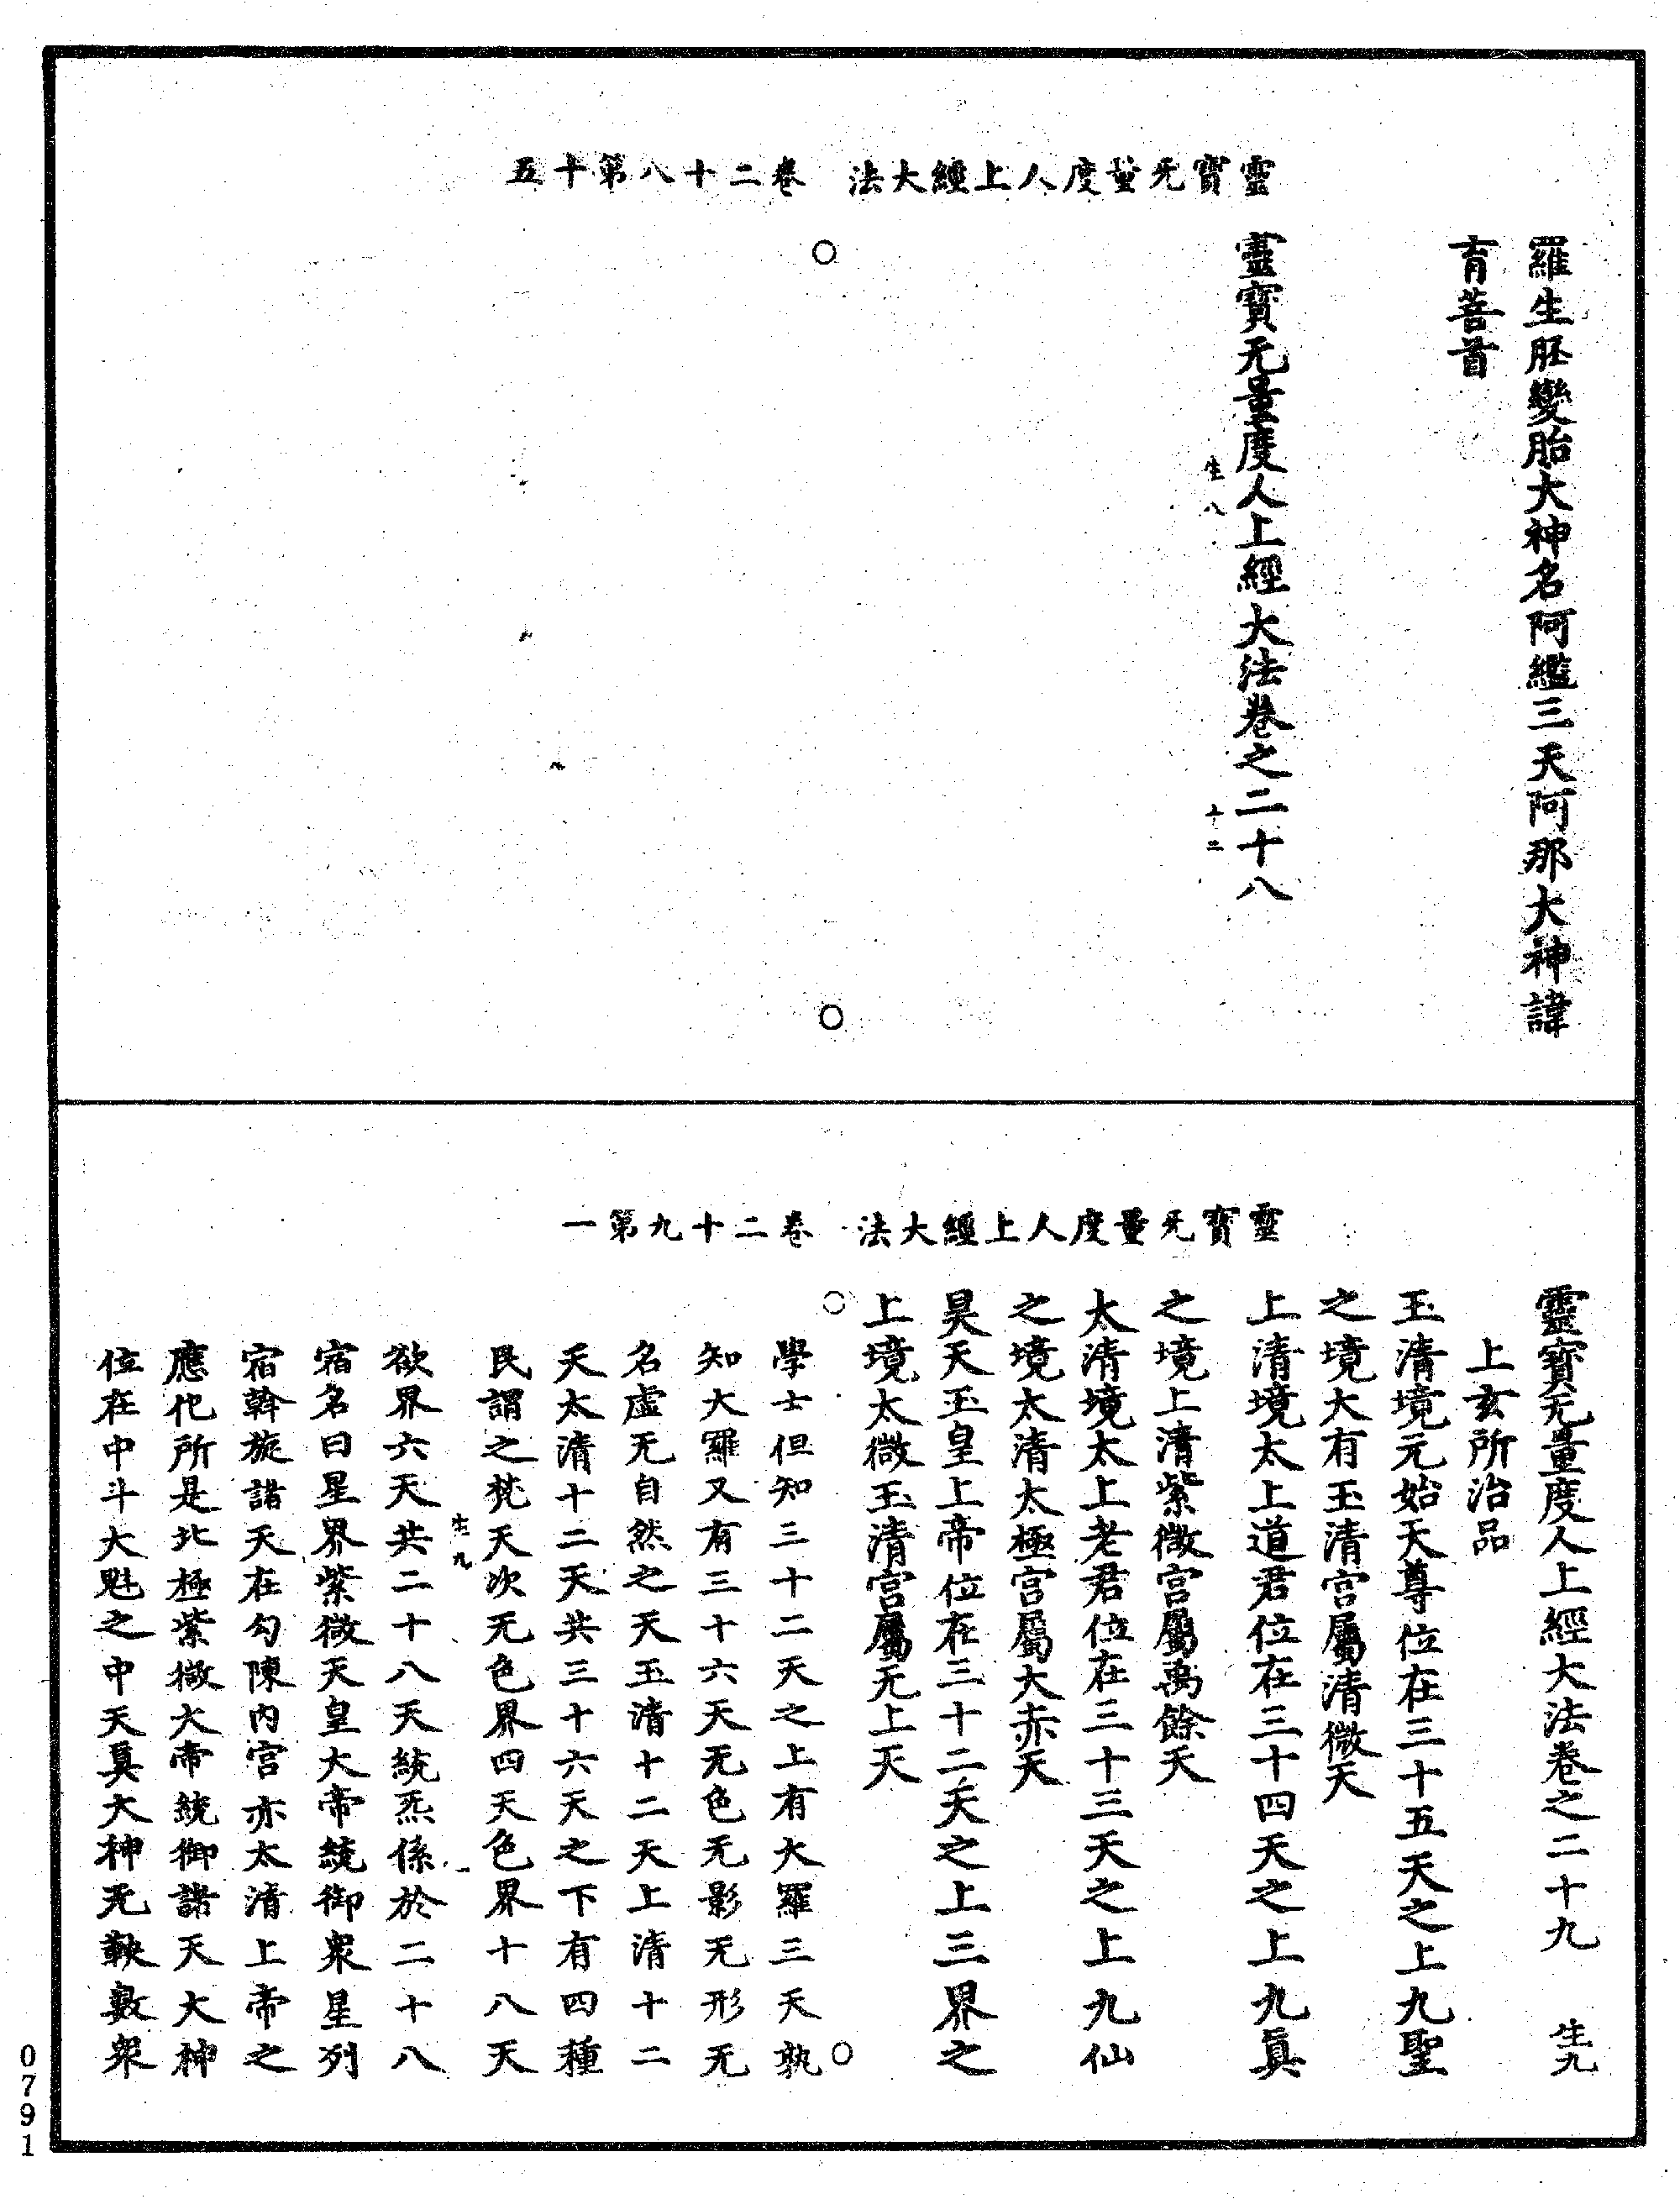 靈寶无量度人上經大法　卷二十八第十五
羅生胚變胎大神名阿鑑三天阿那大神諱
育菩首
靈寶无量度人上經大法卷之二十八
生八　十三
靈寶无量度人上經大法　卷二十九第一
靈寶无量度人上經大法卷之二十九　生九
上玄所治品
玉清境元始天尊位在三十五天之上九聖
之境大有玉清宮屬清微天
上清境太上道君位在三十四天之上九眞
之境上清紫微宮屬禹餘天
太清境太上老君位在三十三天之上九仙
之境太清太極宮屬大赤天
昊天玉皇上帝位在三十二天之上三界之
上境太微玉清宮屬无上天
學士但知三十二天之上有大羅三天孰
知大羅又有三十六天无色无影无形无
名虛无自然之天玉清十二天上清十二
天太清十二天共三十六天之下有四種
民謂之梵天次无色界四天色界十八天
生九　一
欲界六天共二十八天統炁係於二十八
宿名曰星界紫微天皇大帝統御衆星列
宿斡旋諸天在勾陳內宮亦太清上帝之
應化所是北極紫微大帝統御諸天大神
位在中斗大魁之中天眞大神无鞅數衆
0791